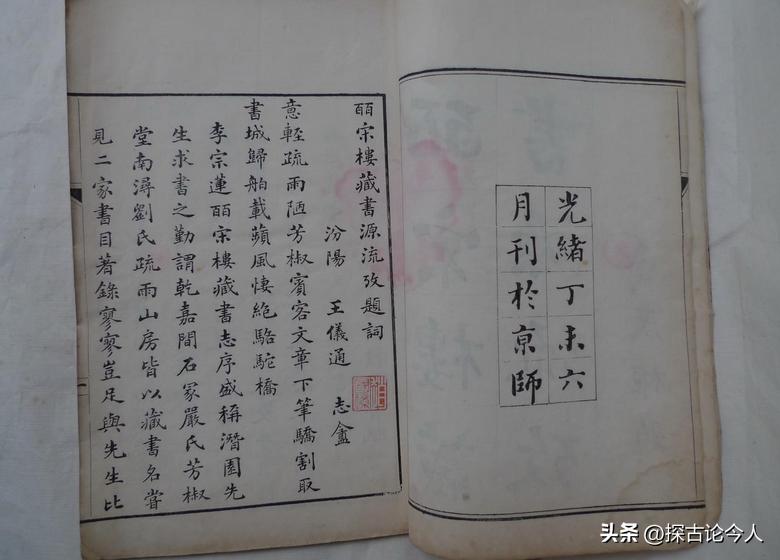 光緒丁未六
月刊於京師
皕宋樓藏書源流攷題詞
汾陽 王儀通 志盦
意輕疏雨陋芳椒賓客文章下筆驕割取
書城歸舶載蘋風悽絕駱駝橋
李宗蓮皕宋樓藏書志序盛稱潛園先
生求書之勤謂乾嘉間石冢嚴氏芳椒
堂南潯劉氏疏雨山房皆以藏書名嘗
見二家書目著錄寥寥豈足與先生比
头条 @探古论今人